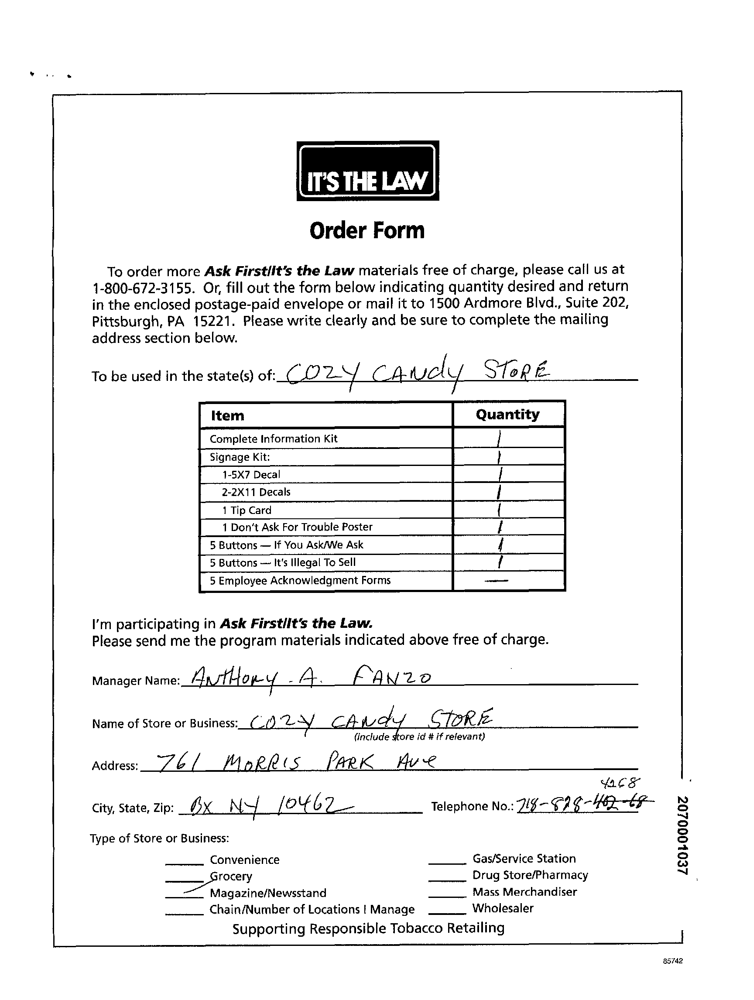 IT'S THE LAW
Order Form
To order more Ask First/It's the Law materials free of charge, please call us at
1-800-672-3155. Or, fill out the form below indicating quantity desired and return
in the enclosed postage-paid envelope or mail it to 1500 Ardmore Blvd., Suite 202,
Pittsburgh, PA 15221. Please write clearly and be sure to complete the mailing
address section below.
To be used in the state(s) of: COZY CANdy STORE
Item Quantity
Complete Information Kit 1
Signage Kit: 1
1-5X7 Decal 1
2-2X11 Decals 1
1 Tip Card 1
1 Don't Ask For Trouble Poster 1
5 Buttons — If You Ask/We Ask 1
5 Buttons — It's Illegal To Sell 1
5 Employee Acknowledgment Forms —
I'm participating in Ask First/It's the Law.
Please send me the program materials indicated above free of charge.
Manager Name: ANTHONY A. FANZO
Name of Store or Business: COZY CANdy STORE
(include store id # if relevant)
Address: 761 MORRIS PARK Ave
4268
City, State, Zip: BX NY 10462 Telephone No.: 718-828-402-68
Type of Store or Business:
Convenience Gas/Service Station
Grocery Drug Store/Pharmacy
Magazine/Newsstand Mass Merchandiser
Chain/Number of Locations I Manage Wholesaler
Supporting Responsible Tobacco Retailing
2070001037
85742